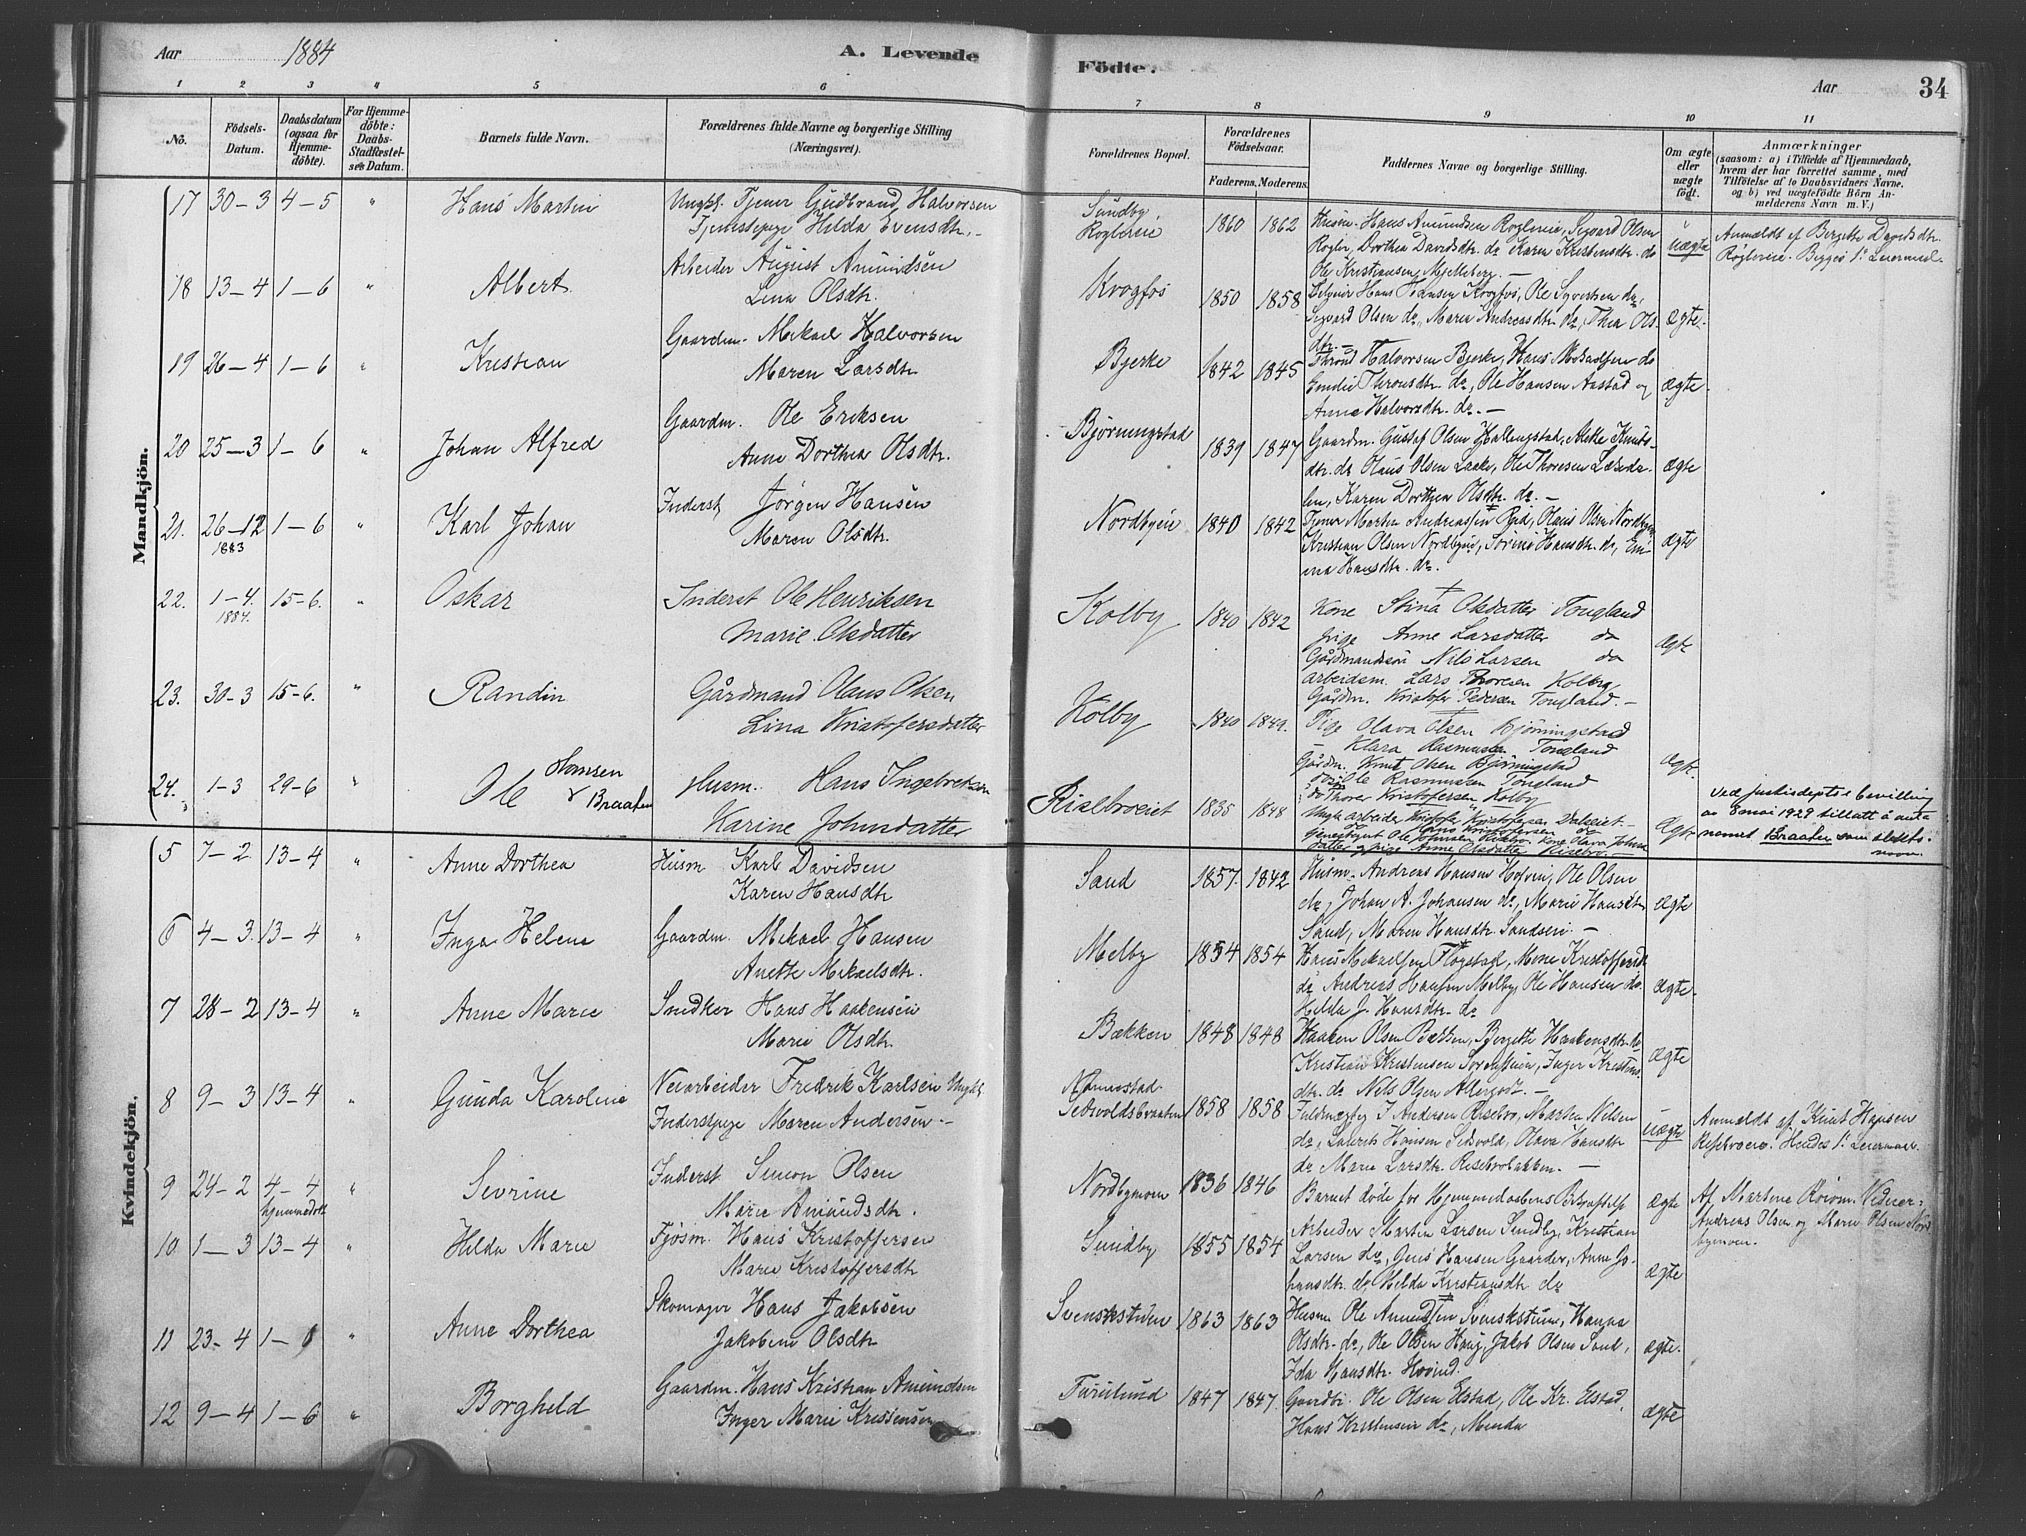 Aar 1884 A. Levende
Födte. Aar 34
1 2 3 4 5 6
7 8 9 10 11
No.
Födsels-
Datum.
Daabsdatum
(ogsaa for
Hjemme-
döbte).
For Hjemme-
döbte:
Daabs-
Stadfæstel-
ses Datum.
Barnets fulde Navn.
Forældrenes fulde Navne og borgerlige Stilling
(Næringsvei).
Forældrenes Bopæl.
Forældrenes
Födselsaar.
Faderens. Moderens.
Faddernes Navne og borgerlige Stilling.
Om ægte
eller
uægte
födt.
Anmærkninger
(saasom: a) i Tilfælde af Hjemmedaab,
hvem der har forrettet samme, med
Tilföielse af to Daabsvidners Navne,
og b) ved uægtefödte Börn An-
melderens Navn m. V.)
Mandkjön.
17 30-3 4-5 " Hans Martin
Ungk. Tjener Gudbrand Halvorsen
Tjenestepige Hilda Evensdtr.
Sundby,
Roglereie
1860 1862
Husm. Hans Amundsen Roglereie, Sigvard Olsen
Rogler, Dorthea Davidsdtr. do Karen Kristensdtr. do
Ole Kristiansen Mjelleberg. —
uægte
Anmeldt af Bergette Davidsdtr.
Roglereie. Begges 1ste Leiermaal.
18 13-4 1-6 " Albert
Arbeider August Amundsen
Lina Olsdtr.
Krogfos 1850 1858
Hans Krogfos, Ole Syvertsen do,
Sigvard Olsen do, Maren Andreasdtr. do, Thea Ols-
dtr. —
ægte.
19 26-4 1-6 " Kristian
Gaardm. Mikael Halvorsen
Maren Larsdtr
Bjerke 1842 1845
Thrond Halvorsen Bjerke, Hans do
Thronsdtr. do, Ole Hansen Aastad og
Anne Halvorsdtr. do. —
ægte.
20 25-3 1-6 " Johan Alfred
Gaardm. Ole Eriksen
Anne Dorthea Olsdtr.
Bjørningstad 1839 1847
Gaardm. Gustaf Olsen Hellingstad, Knuts-
dtr. do Olaus Olsen Laake, Ole Thoresen
Karen Dorthea Olsdtr. do. —
ægte
21. 26-12 1883 1-6 " Karl Johan
Inderst, Jørgen Hansen
Maren Olsdtr.
Nordbyeie 1840 1842
Tjener Martin Andreassen Olaus Olsen Nordbyeie
Kristian Olsen Nordbyeie, Sørine Hansdtr. do, Em-
ma Hansdtr. do.
ægte
22. 1-4. 1884. 15-6. " Oskar
Inderst Ole Henriksen
Marie Olsdatter
Kolby 1840 1842
Kone Stina Olsdatter Tougland
pige Anne Larsdatter do
Gårdmandssøn Nils Larsen do
arbeidsm. Lars Thoresen Kolby
Gårdm. Kristofer Pedersen Tougland. —
ægte
23. 30-3 15-6. " Randin
Gårdmand Olaus Olsen
Lina Kristofersdatter
Kolby 1840 1849.
Pige Olava Olsen Bjørningstad
Klara Rasmussen Tougland
Gårdm. Knut Olsen Bjørningstad
Ole Rasmussen Tougland
do Thorer Kristofersen Kolby
ægte
24. 1-3 29-6 " Ole Hansen
Braaten
Husm. Hans Ingebretsen
Karine Johnsdatter
Risebroeiet 1835 1848
Ungk arbeider Kristofer Kristofersen
Hans Kristofersen do
Ole Johnsen Kone Olava Johns-
datter og pige Anne Olsdatter Risebro. —
ægte
Ved justisdepts bevilling
av 8 mai 1929 tillatt å anta
navnet Braaten som slekts-
navn.
Kvindekjön.
5 7-2 13-4 " Anne Dorthea
Husm Karl Davidsen
Karen Hansdtr
Sand 1857 1842
Husm. Andreas Hansen Ole Olsen
do, Johan A. Johansen do, Marie Hansdtr.
Sand, Maren Hansdtr. Sandseie. —
ægte
6 4-3. 13-4 " Inga Helene
Gaardm. Mikael Hansen
Anette Mikaelsdtr.
Melby 1854 1854
Hans Mikaelsen Flogstad, Kristoffersdtr
do Andreas Hansen Melby, Ole Hansen do.
Hilda J. Hansdtr. do
ægte.
7 28-2 13-4 " Anne Marie
Snedker Hans Haakensen
Marie Olsdtr.
Bækken 1848 1848
Haaken Olsen Bergette Haakensdtr. do
Kristian Kristensen Inger Kristens-
dtr. do Nils Olsen —
ægte
8 9-3 13-4 " Gunda Karoline
Veiarbeider Fredrik Karlsen Ungk.
Inderstpige Maren Andersen —
Nannestad
Sedvoldsbraaten 1858 1858
J. Andersen Risebro, Martin Nilsen
do, Laurits Hansen Sedsvold, Olava Hansdtr
do Marie Larsdtr. Risebrobakken. —
uægte
Anmeldt af Knut Hansen
Risebroeie. Hendes 1ste Leiermaal.
9 24-2 4-4 hjemmedøbt " Sevrine
Inderst Simon Olsen
Marie Amundsdtr.
Nordbymoen 1836 1846
Barnet døde før Hjemmedaabens Bekræftelse
ægte
Af Martine Vidner:
Andreas Olsen og Marie Olsen Nord-
bymoen.
10. 1-3 13-4 " Hilda Marie
Fjøsm. Hans Kristoffersen
Marie Kristoffersdtr
Sundby 1855 1854
Arbeider Martin Larsen Sundby, Kristian
Larsen do, Jens Hansen Gaarder, Anne Jo-
hansdtr. do, Hilda Kristiansdtr. do
ægte
11 23-4 1- " Anne Dorthea
Skomager Hans Jakobsen
Jakobine Olsdtr
Svenskstuen 1863 1863
Husm Ole Amundsen Svenskstuen, Hanna
Olsdtr. do, Ole Olsen Haug, Jakob Olsen Sand,
Ida Hansdtr.
ægte.
12 9-4 1-6 " Borghild
Gaardm. Hans Kristian Amundsen
Inger Marie Kristensen
Furulund 1847 1847.
Gaardbr. Ole Olsen Elstad, Ole Kr. Elstad,
Hans Kristensen do, Minda
ægte